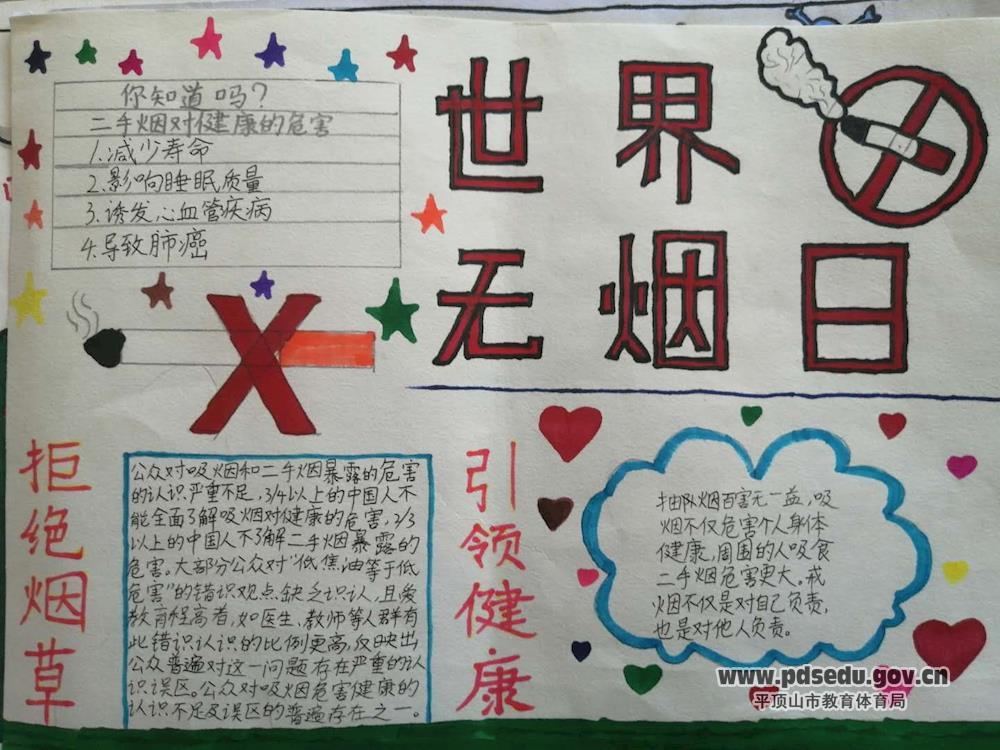 世界
无烟日
你知道吗？
二手烟对健康的危害
1.减少寿命
2.影响睡眠质量
3.诱发心血管疾病
4.导致肺癌
拒绝烟草
公众对吸烟和二手烟暴露的危害
的认识严重不足，3/4以上的中国人不
能全面了解吸烟对健康的危害，2/3
以上的中国人不了解二手烟暴露的
危害。大部分公众对“低焦油等于低
危害”的错识观点缺乏识认，且爱
教育程高者，如医生、教师等人群有
此错识认识的比例更高，反映出
公众普遍对这一问题存在严重的认
识误区。公众对吸烟危害健康的
认识不足及误区的普遍存在之一。
引领健康
抽烟百害无一益，吸
烟不仅危害个人身体
健康，周围的人吸食
二手烟危害更大。戒
烟不仅是对自己负责，
也是对他人负责。
www.pdsedu.gov.cn
平顶山市教育体育局